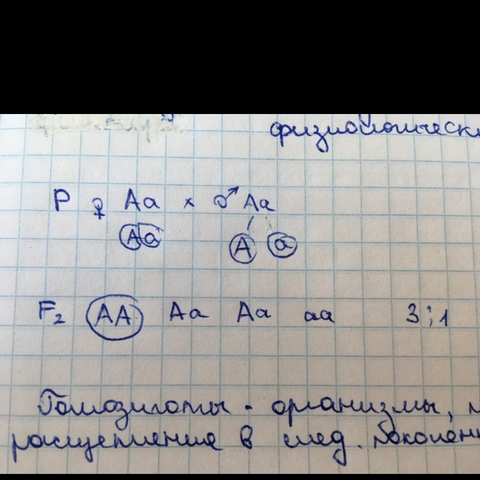 физиологическ
P ♀ Aa × ♂ Aa
A a A a
F₂ AA Aa Aa aa 3:1
Гомозиготы - организмы,
расщепление в след. поколен